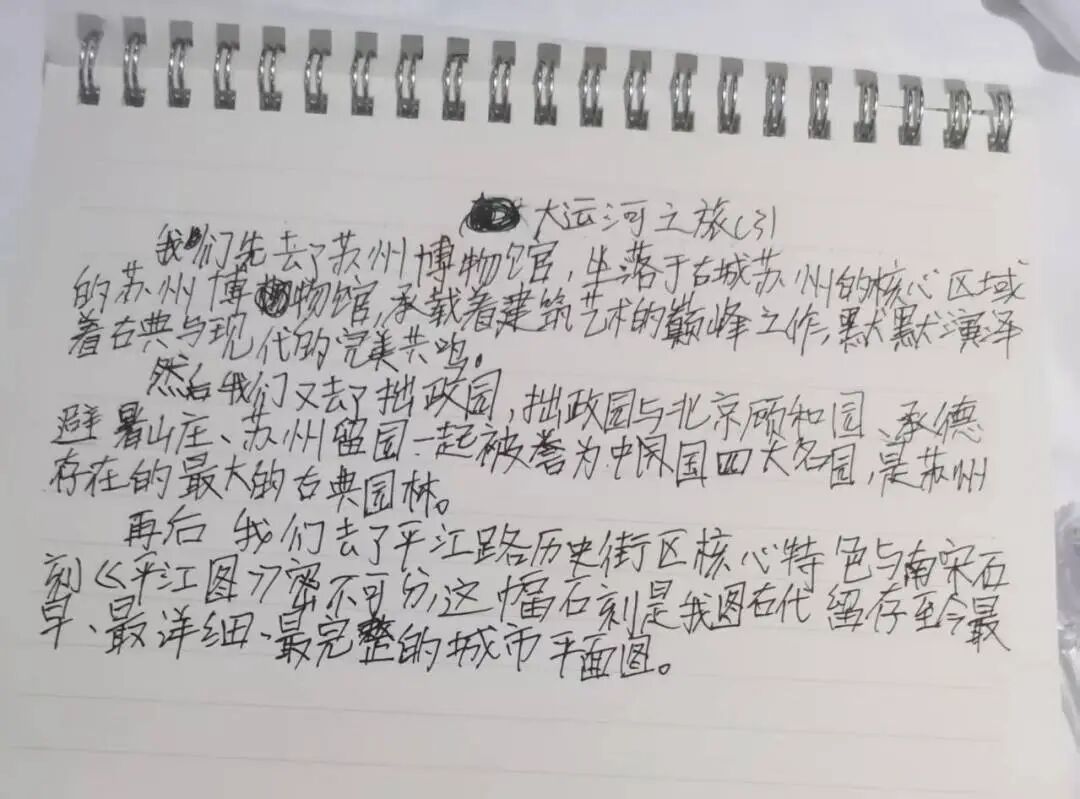 大运河之旅(3)
我们先去了苏州博物馆，坐落于古城苏州的核心区域
的苏州博物馆，承载着建筑艺术的巅峰之作，默默演泽
着古典与现代的完美共鸣。
然后我们又去了拙政园，拙政园与北京颐和园、承德
避暑山庄、苏州留园一起被誉为中国四大名园，是苏州
存在的最大的古典园林。
再后我们去了平江路历史街区核心特色与南宋石
刻《平江图》密不可分，这幅石刻是我国古代留存至今最
早、最详细、最完整的城市平面图。